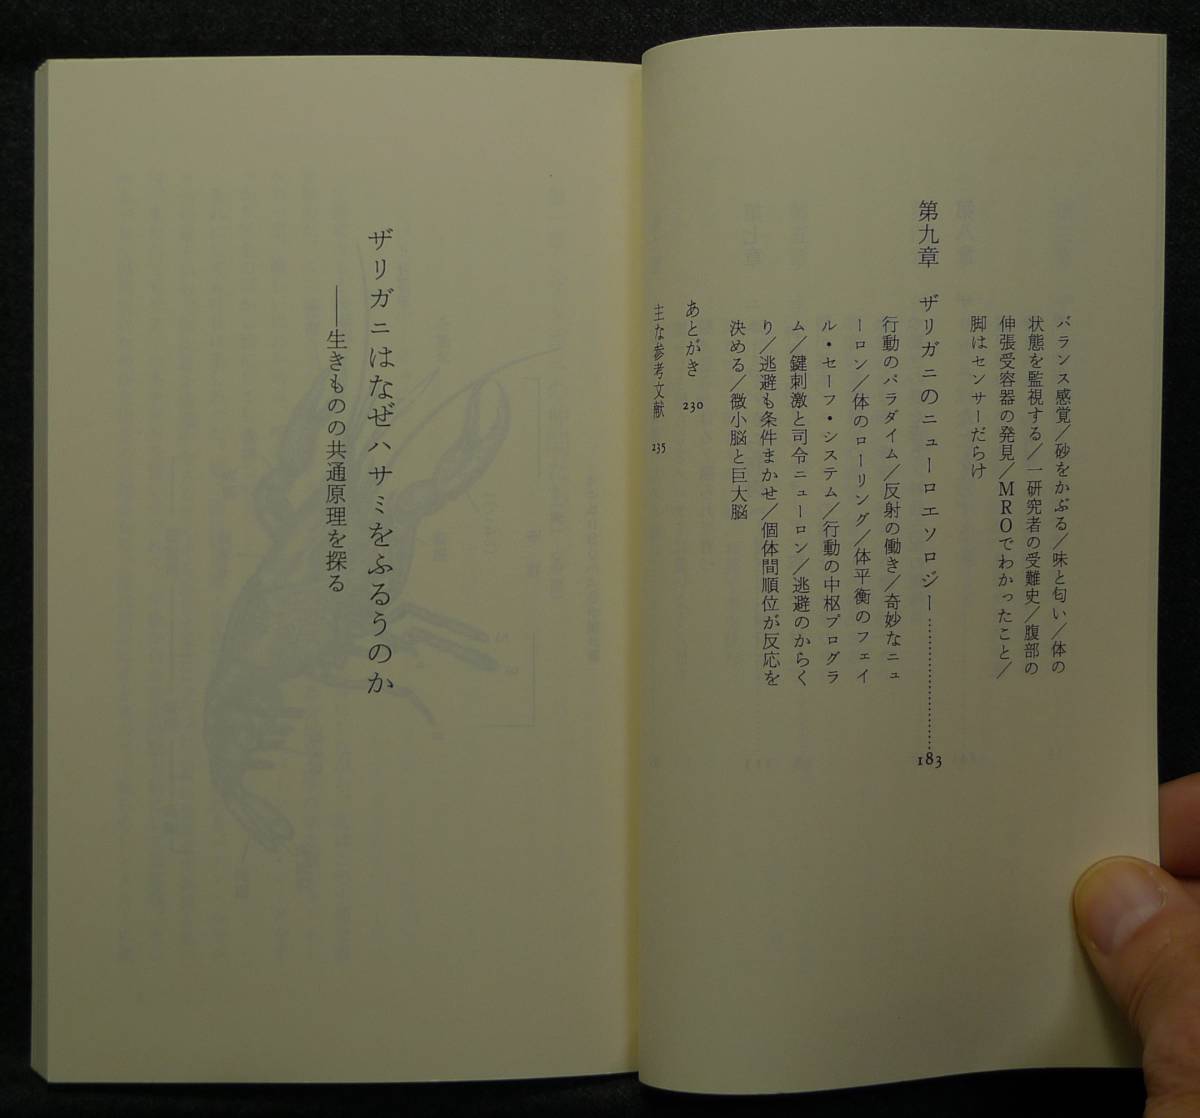 バランス感覚／砂をかぶる／味と匂い／体の
状態を監視する／一研究者の受難史／腹部の
伸張受容器の発見／MROでわかったこと／
脚はセンサーだらけ
第九章 ザリガニのニューロエソロジー……………………183
行動のパラダイム／反射の働き／奇妙なニュ
ーロン／体のローリング／体平衡のフェイ
ル・セーフ・システム／行動の中枢プログラ
ム／鍵刺激と司令ニューロン／逃避のからく
り／逃避も条件まかせ／個体間順位が反応を
決める／微小脳と巨大脳
あとがき 230
主な参考文献 235
ザリガニはなぜハサミをふるうのか
——生きものの共通原理を探る